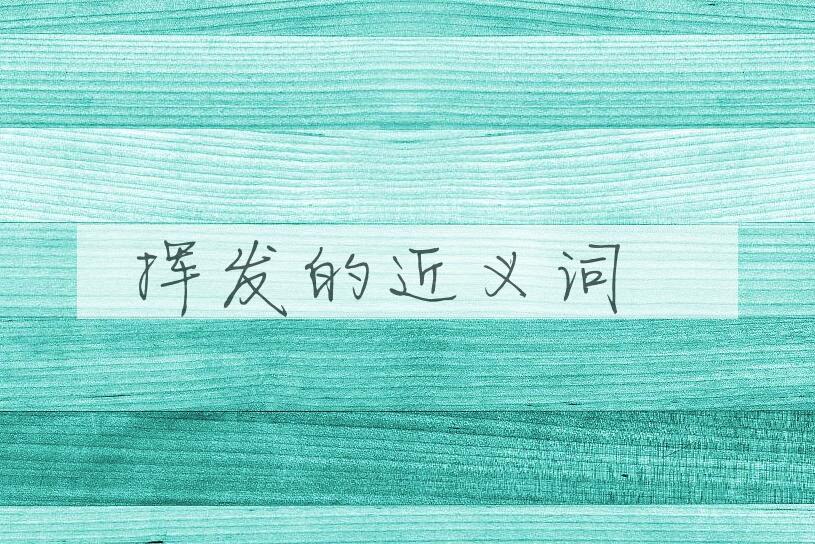 挥发的近义词